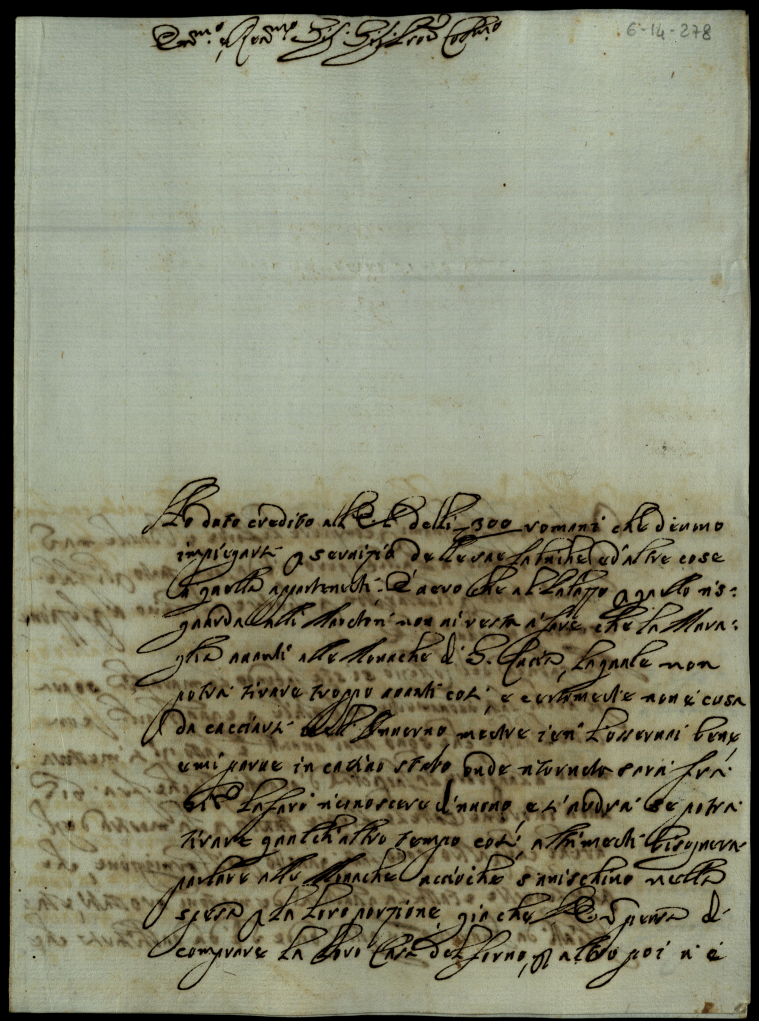 6-14-278
Ho dato credito all' delli 300 romani che diemo
impiegarsi servizio delle sue fabriche ed altre cose
a quella appartenenti. È vero che al Palazzo p quello ris=
guarda alli non vi resta à fare, che la Mura=
glia avanti alle Monache di S. la quale non
potrà tirare troppo avanti così, e certamente non è cosa
da cacciarsi nell' Inverno, mentre ieri l'osservai bene
e mi parve in cattivo stato, onde ritornato sarà frà
la farò riconoscere di nuovo, e si vedrà se potrà
tirare qualch'altro tempo così, altrimenti bisognerà
parlare alle Monache acciòche s'arrischino nella
spesa p la loro porzione, già che pensa di
comprare la loro Casa del forno, altro poi vi è